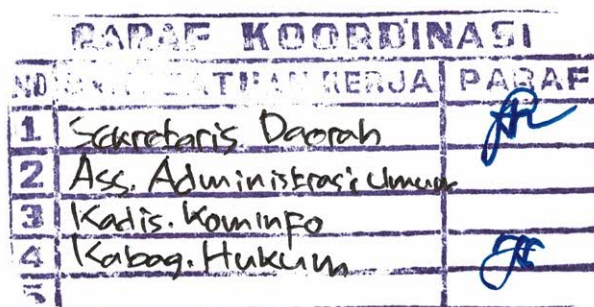 PARAF KOORDINASI
NO SATUAN KERJA PARAF
1 Sekretaris Daerah
2 Ass. Administrasi Umum
3 Kadis. Kominfo
4 Kabag. Hukum
5